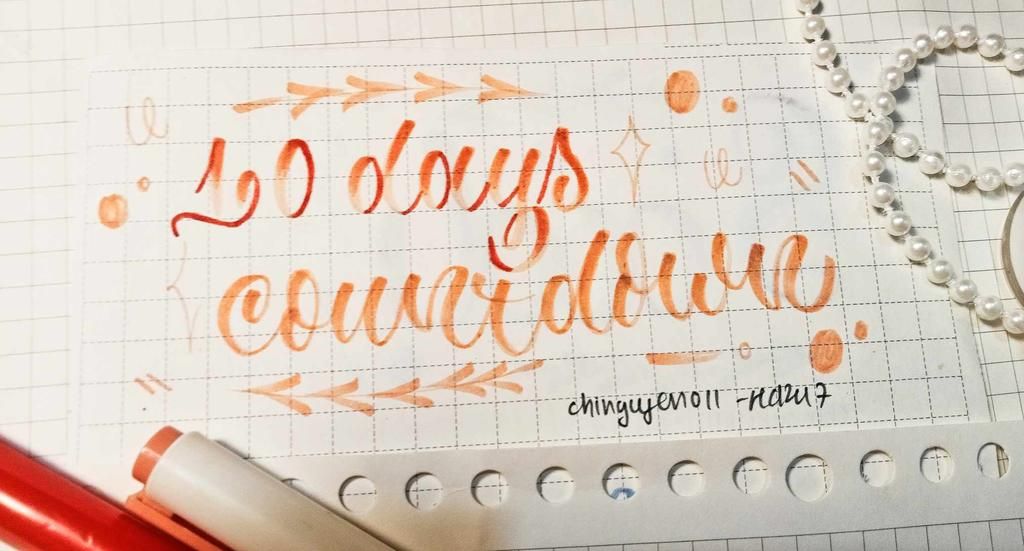 10 days
countdown
chinguyen011